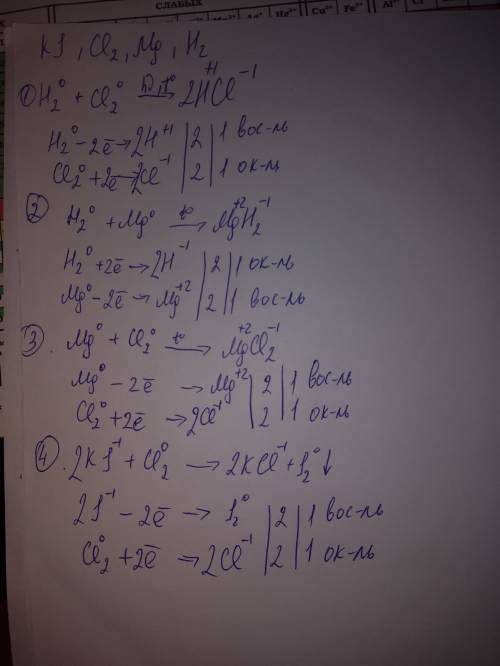 СЛАБЫХ
Cu²⁺ Fe³⁺ Al³⁺
KJ, Cl₂, Mg, H₂
① H₂⁰ + Cl₂⁰ → 2H⁺¹Cl⁻¹
H₂⁰ - 2ē → 2H⁺¹ | 2 | 1 вос-ль
Cl₂⁰ + 2ē → 2Cl⁻¹ | 2 | 1 ок-ль
② H₂⁰ + Mg⁰ →(t°) Mg⁺²H₂⁻¹
H₂⁰ + 2ē → 2H⁻¹ | 2 | 1 ок-ль
Mg⁰ - 2ē → Mg⁺² | 2 | 1 вос-ль
③ Mg⁰ + Cl₂⁰ →(t°) Mg⁺²Cl₂⁻¹
Mg⁰ - 2ē → Mg⁺² | 2 | 1 вос-ль
Cl₂⁰ + 2ē → 2Cl⁻¹ | 2 | 1 ок-ль
④ 2KJ⁻¹ + Cl₂⁰ → 2KCl⁻¹ + J₂⁰↓
2J⁻¹ - 2ē → J₂⁰ | 2 | 1 вос-ль
Cl₂⁰ + 2ē → 2Cl⁻¹ | 2 | 1 ок-ль